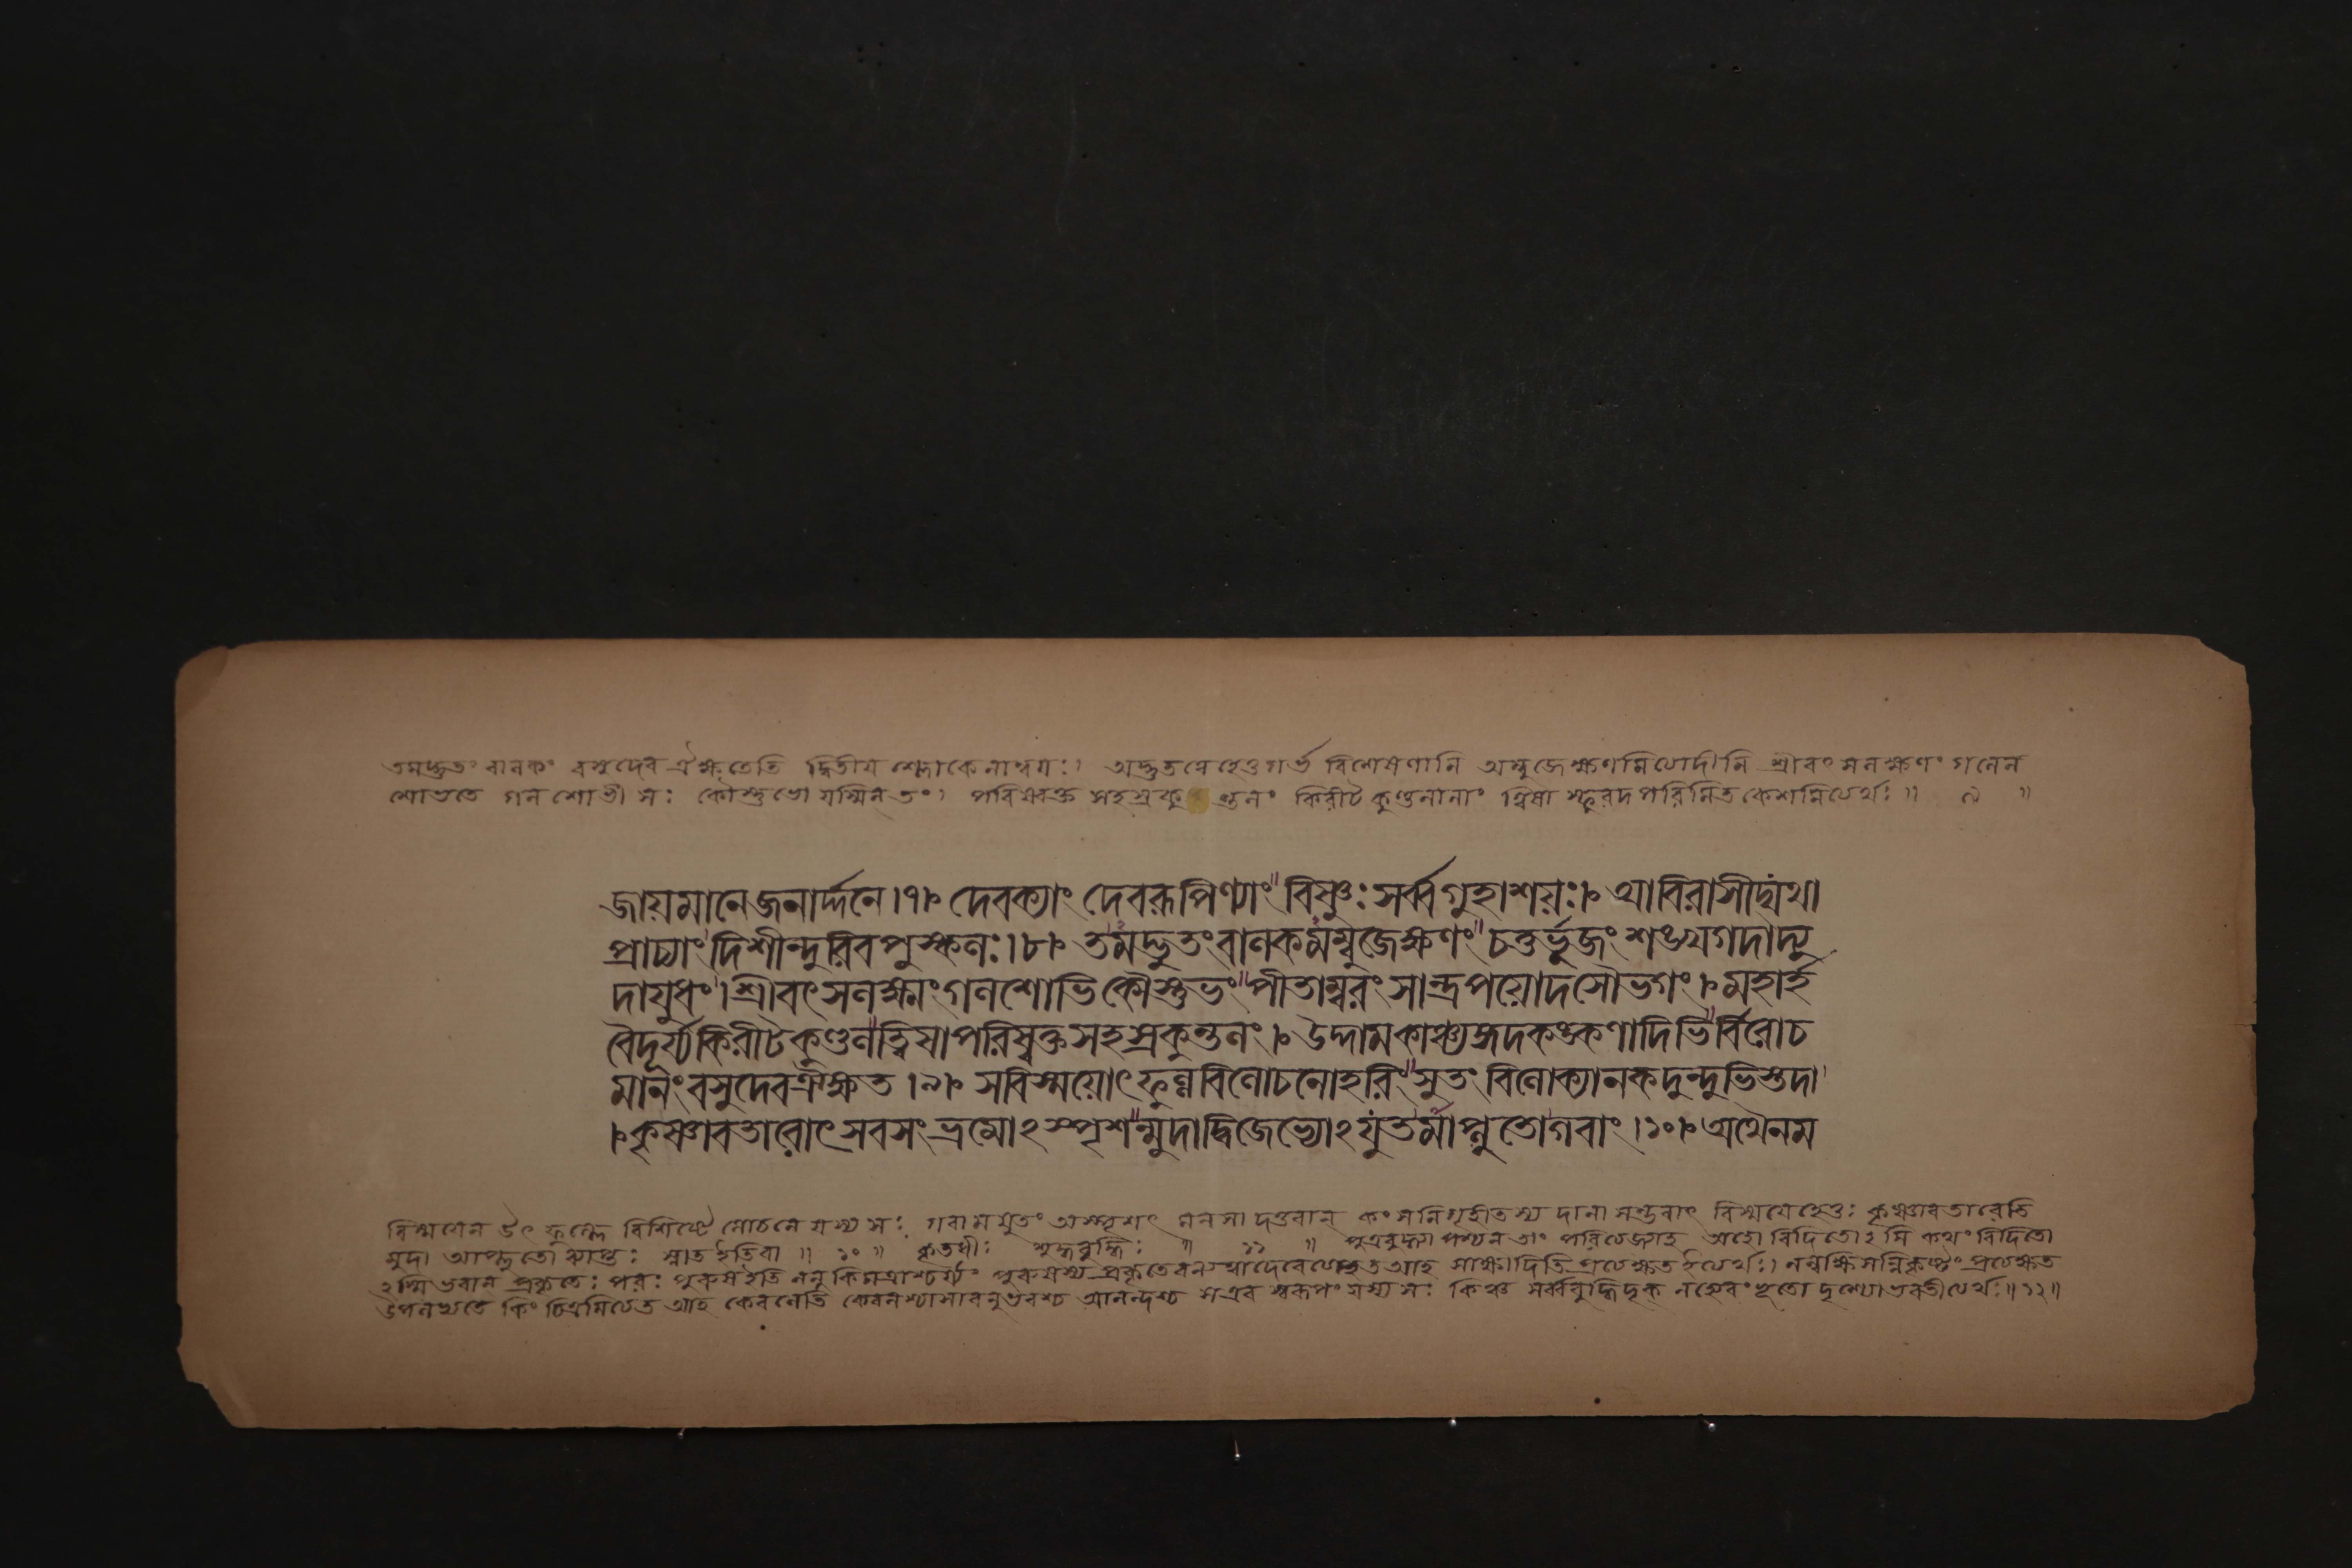 তমদ্ভুতং বালকং বসুদেব ঐক্ষতেতি দ্বিতীয় শ্লোকেনান্বয়ঃ। অদ্ভুতত্বেহেতুগর্ভ বিশেষণানি অম্বুজেক্ষণমিত্যাদীনি শ্রীবৎসলক্ষণং গলেন
শোভতে গলশোভী সঃ কৌস্তুভো যস্মিন্ তং। পরিষ্বক্ত সহস্রকুন্তলং কিরীট কুণ্ডলানাং ত্বিষা স্ফুরদপরিমিত কেশমিত্যর্থঃ॥ ৯ ॥
জায়মানেজনার্দ্দনে।৭। দেবক্যাং দেবরূপিণ্যাং বিষ্ণুঃসর্ব্বগুহাশয়ঃ। আবিরাসীদ্যথা
প্রাচ্যাং দিশীন্দুরিবপুষ্কলঃ।৮। তমদ্ভুতংবালকমম্বুজেক্ষণং চতুর্ভুজং শঙ্খগদাদ্যু
দাযুধং।শ্রীবৎসলক্ষ্মংগলশোভিকৌস্তুভং পীতাম্বরং সান্দ্রপয়োদসৌভগং। মহার্হ
বৈদূর্য্যকিরীটকুণ্ডলত্বিষাপরিষ্বক্তসহস্রকুন্তলং। উদ্দামকাঞ্চ্যঙ্গদকঙ্কণাদিভির্বিরোচ
মানং বসুদেবঐক্ষত।৯। সবিস্ময়োৎফুল্লবিলোচনোহরিং সুতং বিলোক্যানকদুন্দুভিস্তদা
।কৃষ্ণাবতারোৎসবসংভ্রমোঽস্পৃশন্মুদাদ্বিজেভ্যোঽযুতমাপ্লুতোগবাং।১০। অথৈনম
বিস্ময়েন উৎফুল্লে বিশিষ্টে লোচনে যস্য সঃ গবামযুতং অস্পৃশৎ মনসা দত্তবান্ কংসনিগৃহীতস্য দানাসম্ভবাৎ বিস্ময়েহেতুঃ কৃষ্ণাবতারেতি
মুদা আপ্লুতো ব্যাপ্তঃ স্নাত ইতিবা ॥ ১০ ॥ কৃতধীঃ শুদ্ধবুদ্ধিঃ ॥ ১১ ॥ পুত্রবুদ্ধ্যা পশ্যন্তং পরিত্যজ্যাহ অহো বিদিতোঽসি কথং বিদিতো
ঽস্মি ভবান্ প্রকৃতেঃ পরঃ পুরুষইতি ননু কিমত্রাশ্চর্য্যং পুরুষস্য প্রকৃতেরন্যত্বাদেবেত্যত আহ সাক্ষাদিতি প্রত্যক্ষতইত্যর্থঃ। নন্বক্ষিসন্নিকৃষ্টং প্রত্যক্ষত
উপলভ্যতে কিং চিত্রমিত্যত আহ কেবলেতি কেবলশ্চাসাবনুভবশ্চ আনন্দশ্চ সএব স্বরূপং যস্য সঃ কিঞ্চ সর্ব্ববুদ্ধিদৃক্ নহ্যেবংভূতো দৃশ্যোভবতীত্যর্থঃ॥১২॥